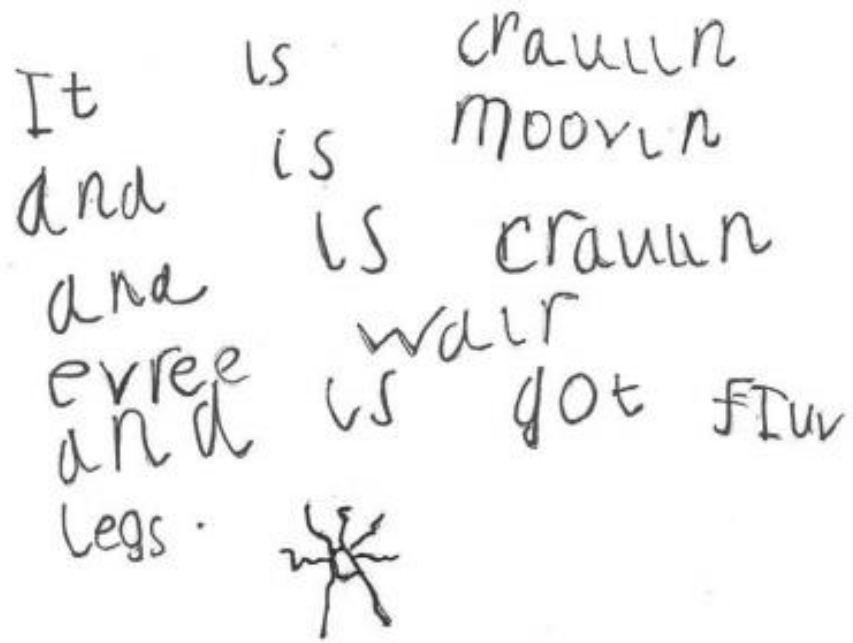 It is crauiin
and is moovin
and is crauiin
evree wair
and is got fIuv
legs.